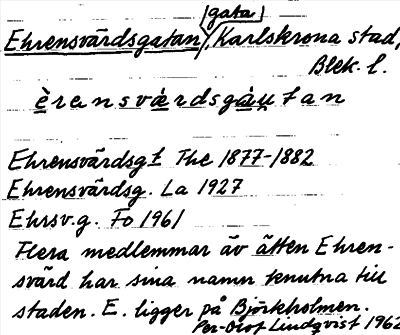 gata
Ehrensvärdsgatan, Karlskrona stad,
Blek. l.
èrensvæ̀rdsgàutan
Ehrensvärdsgt The 1877-1882
Ehrensvärdsg. La 1927
Ehrsv.g. Fo 1961
Flera medlemmar äv ätten Ehren-
svärd har sina namn knutna till
staden. E. ligger på Björkholmen.
Per-Olof Lindqvist 1962